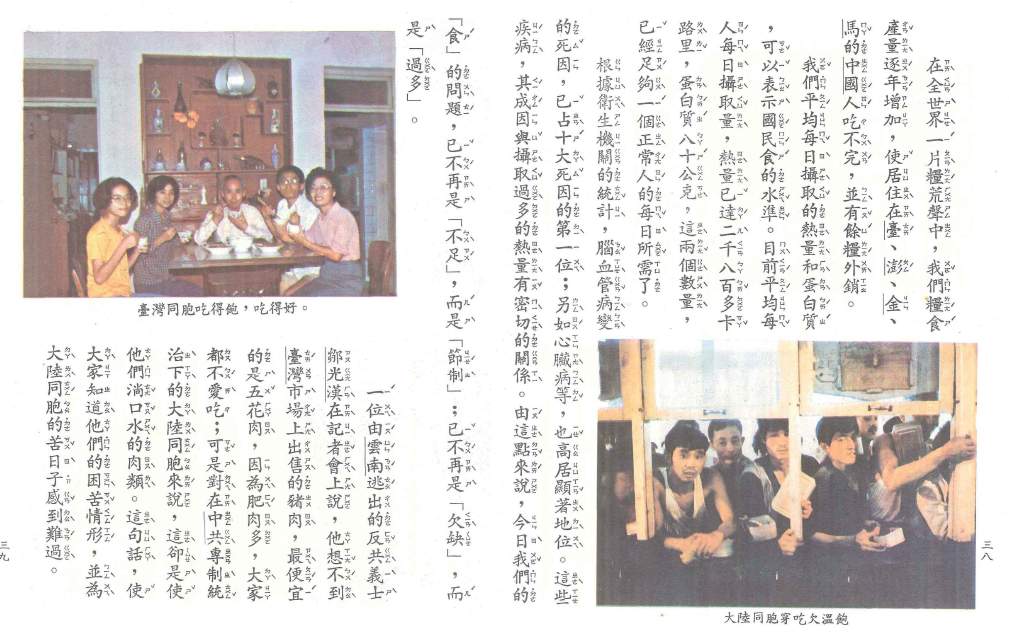 在全世界一片糧荒聲中，我們糧食
產量逐年增加，使居住在臺、澎、金、
馬的中國人吃不完，並有餘糧外銷。
我們平均每日攝取的熱量和蛋白質
，可以表示國民食的水準。目前平均每
人每日攝取量，熱量已達二千八百多卡
路里，蛋白質八十公克，這兩個數量，
已經足夠一個正常人的每日所需了。
根據衛生機關的統計，腦血管病變
的死因，已占十大死因的第一位；另如心臟病等，也高居顯著地位。這些
疾病，其成因與攝取過多的熱量有密切的關係。由這點來說，今日我們的
大陸同胞穿吃欠溫飽
三八
「食」的問題，已不再是「不足」，而是「節制」；已不再是「欠缺」，而
是「過多」。
臺灣同胞吃得飽，吃得好。
一位由雲南逃出的反共義士
鄒光漢在記者會上說，他想不到
臺灣市場上出售的豬肉，最便宜
的是五花肉，因為肥肉多，大家
都不愛吃；可是對在中共專制統
治下的大陸同胞來說，這卻是使
他們淌口水的肉類。這句話，使
大家知道他們的困苦情形，並為
大陸同胞的苦日子感到難過。
三九